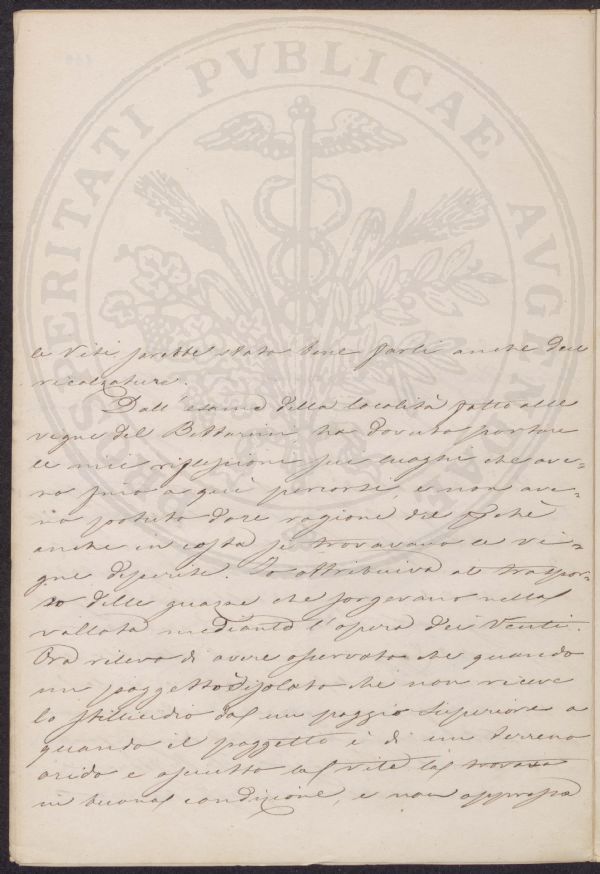 PROSPERITATI PVBLICAE AVGENDAE
le Viti sarebbe stato bene farli anche delle
ricalzature.
Dall'esame della località fatto alle
vigne del Bettarini ho dovuto portare
le mie riflessioni sui luoghi che ave-
vo fino a qui percorsi, e non ave-
vo potuto dare ragione del pchè
anche in costa si trovavano le vi-
gne deperite. Io attribuiva al traspor-
to delle guazze che sorgevano nella
vallata mediante l'opera dei Venti.
Ora rilevo di avere osservato che quando
un poggetto è isolato che non riceve
lo stillicidio dal un poggio superiore e
quando il poggetto è di un terreno
arido e asciutto la vite la trovava
in buona condizione, e non appressa